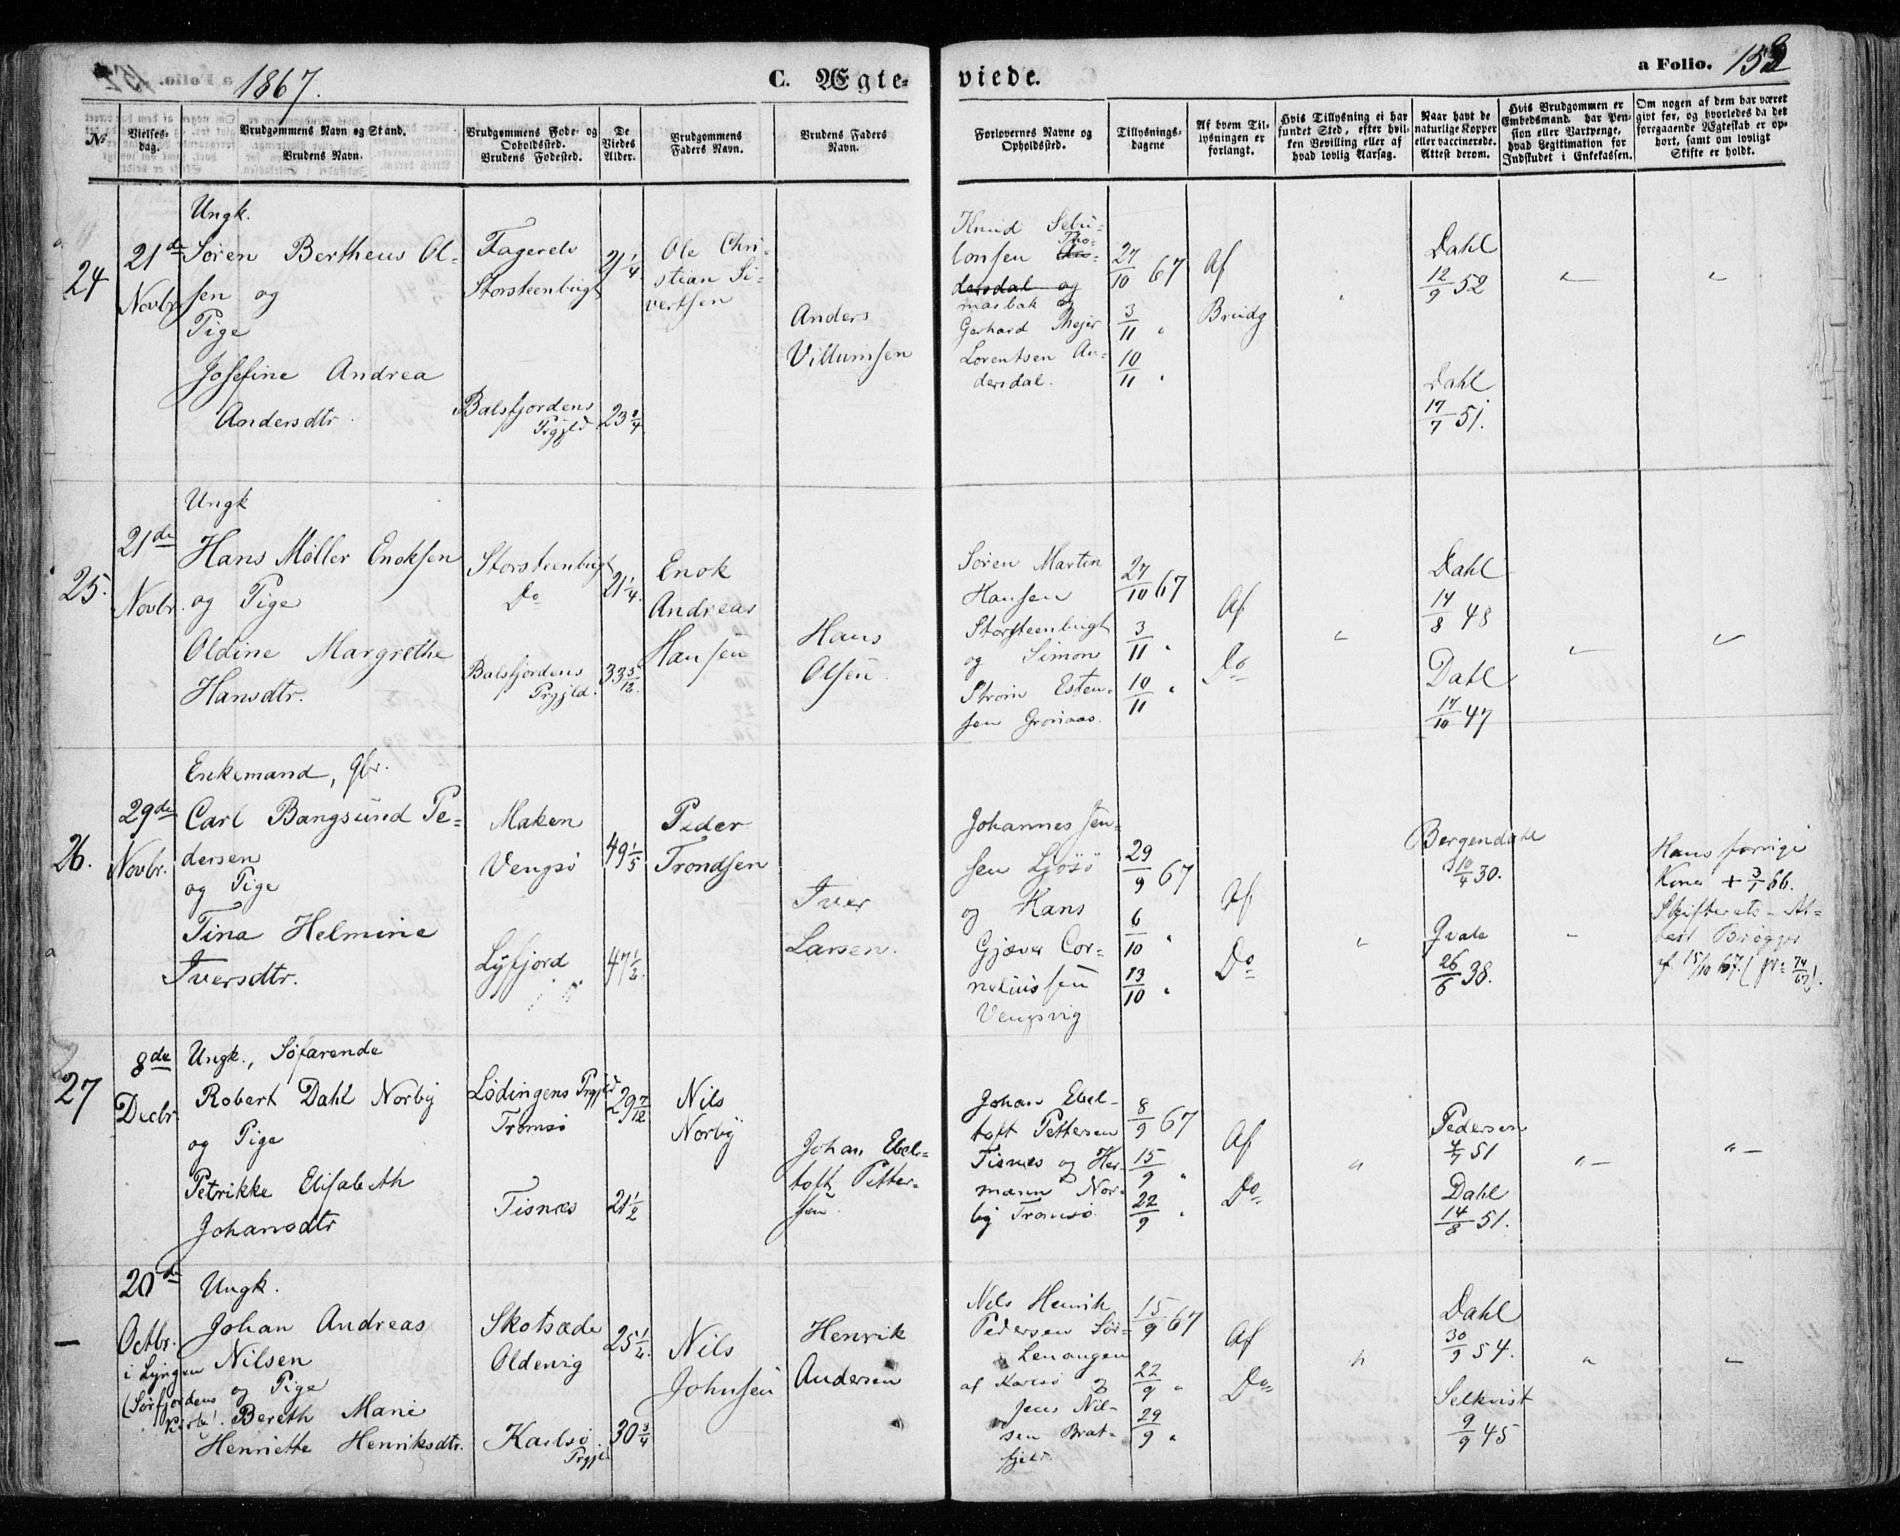 1867.
C. Ægte-
viede.
a Folio. 153
No
Vielses-
dag.
Brudgommens Navn og Stand.
Brudens Navn.
Brudgommens Føde- og
Opholdssted.
Brudens Fødested.
De
Viedes
Alder.
Brudgommens
Faders Navn.
Brudens Faders
Navn.
Forlovernes Navne og
Opholdssted.
Tillysnings-
dagene
Af hvem Til-
lysningen er
forlangt.
Hvis Tillysning ei har
fundet Sted, efter hvil-
ken Bevilling eller af
hvad lovlig Aarsag.
Naar havt de
naturlige Kopper
eller vaccinerede.
Attest derom.
Hvis Brudgommen er
Embedsmand, har Pen-
sion eller Vartpenge,
hvad Legitimation for
Indskudet i Enkekassen.
Om nogen af dem har været
givt før, og hvorledes da det
foregaaende Ægteskab er op-
hørt, samt om lovligt
Skifte er holdt.
24
21de
Novbr
Ungk.
Søren Bertheus Ol-
sen og
Pige
Josefine Andrea
Andersdtr.
Fagerelv
Storsteenbugt
Balsfjordens
Prgjld.
21 1/4
23 3/4
Ole Chri-
stian Si-
vertsen
Anders
Villumsen
Knud Sebu-
lonsen Tho-
masbak og
Gerhard Mejer
Lorentsen An-
dersdal.
27/10 67
3/11 "
10/11 "
Af
Brudg
"
Dahl
12/9 52
Dahl
17/7 51.
"
"
25.
21de
Novbr.
Ungk
Hans Møller Enoksen
og Pige
Oldine Margrethe
Hansdtr.
Storsteenbugt
Do
Balsfjordens
Prgjld.
21 1/4.
33 5/12
Enok
Andreas
Hansen
Hans
Olsen.
Søren Martin
Hansen
Storsteenbugt
og Simon
Strøm Esten-
sen Grønaas.
27/10 67
3/11 "
10/11 "
Af
Do
"
Dahl
14/8 48
Dahl
17/10 47
"
"
26.
29de
Novbr.
Enkemand, gbr.
Carl Bangsund Pe-
dersen
og Pige
Tina Helmine
Iversdtr.
Maken
Vengsø
Lyfjord
49 1/5
47 1/2.
Peder
Trondsen
Iver
Larsen.
Johannes Jen-
sen Ljøsø
og Hans
Gjæver Cor-
neliussen
Vengsvig
29/9 67
6/10 "
13/10 "
Af
Do
"
Bergendahl
10/4 30.
Qvale
26/6 38.
"
Hans forrige
Kone + 3/1 66.
Skifterets-At-
test Brøgger
af 15/10 67. ( Jr: 74/67).
27
8de
Decbr
Ungk., Søfarende
Robert Dahl Norby
og Pige
Petrikke Elisabeth
Johansdtr
Lødingens Prgjld
Tromsø
Tisnæs
29 7/12
21 1/2
Nils
Norby
Johan Ebel-
toft Petter-
sen.
Johan Ebel-
toft Pettersen
Tisnæs og Her-
mann Nor-
by Tromsø.
8/9 67
15/9 "
22/9 "
Af
Do
"
Pedersen
4/7 51
Dahl
14/8 51.
"
"
—
20de
Octbr.
i Lyngen
(Sørfjordens
Kirke).
Ungk.
Johan Andreas
Nilsen
og Pige
Bereth Marie
Henriette Henriksdtr.
Skotsæde
Oldervig
Karlsø
Prgjld
25 1/4.
30 3/4
Nils
Johnsen
Henrik
Andersen
Nils Henrik
Pedersen Sør-
Lenangen
af Karlsø og
Jens Nil-
sen Brat-
fjeld.
15/9 67
22/9 "
29/9 "
Af
Do
"
Dahl
30/9 54.
Selkvist
9/9 45
"
"